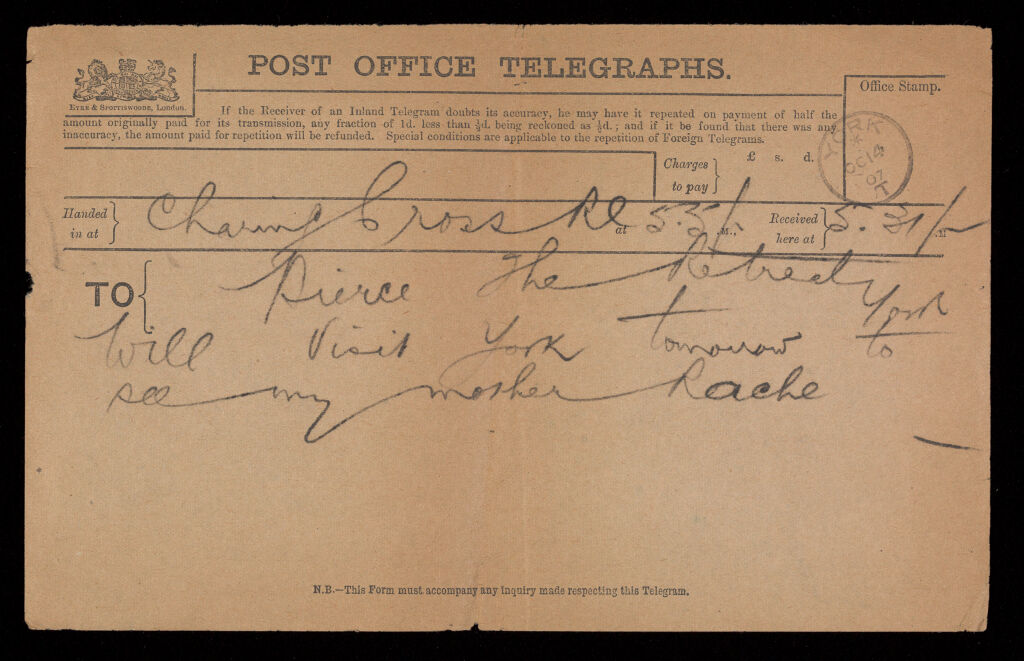 POST OFFICE TELEGRAPHS.
EYRE & SPOTTISWOODE, LONDON.
Office Stamp.
If the Receiver of an Inland Telegram doubts its accuracy, he may have it repeated on payment of half the
amount originally paid for its transmission, any fraction of 1d. less than ½d. being reckoned as ½d.; and if it be found that there was any
inaccuracy, the amount paid for repetition will be refunded. Special conditions are applicable to the repetition of Foreign Telegrams.
YORK
OC 14
07
T
Charges to pay } £ s. d.
Handed in at } Charing Cross at 5.5/- .M., Received here at } 5.31/- .M
TO { Pierce The Retreat York
Will Visit York tomorrow to
see my mother Rache
N.B.—This Form must accompany any Inquiry made respecting this Telegram.